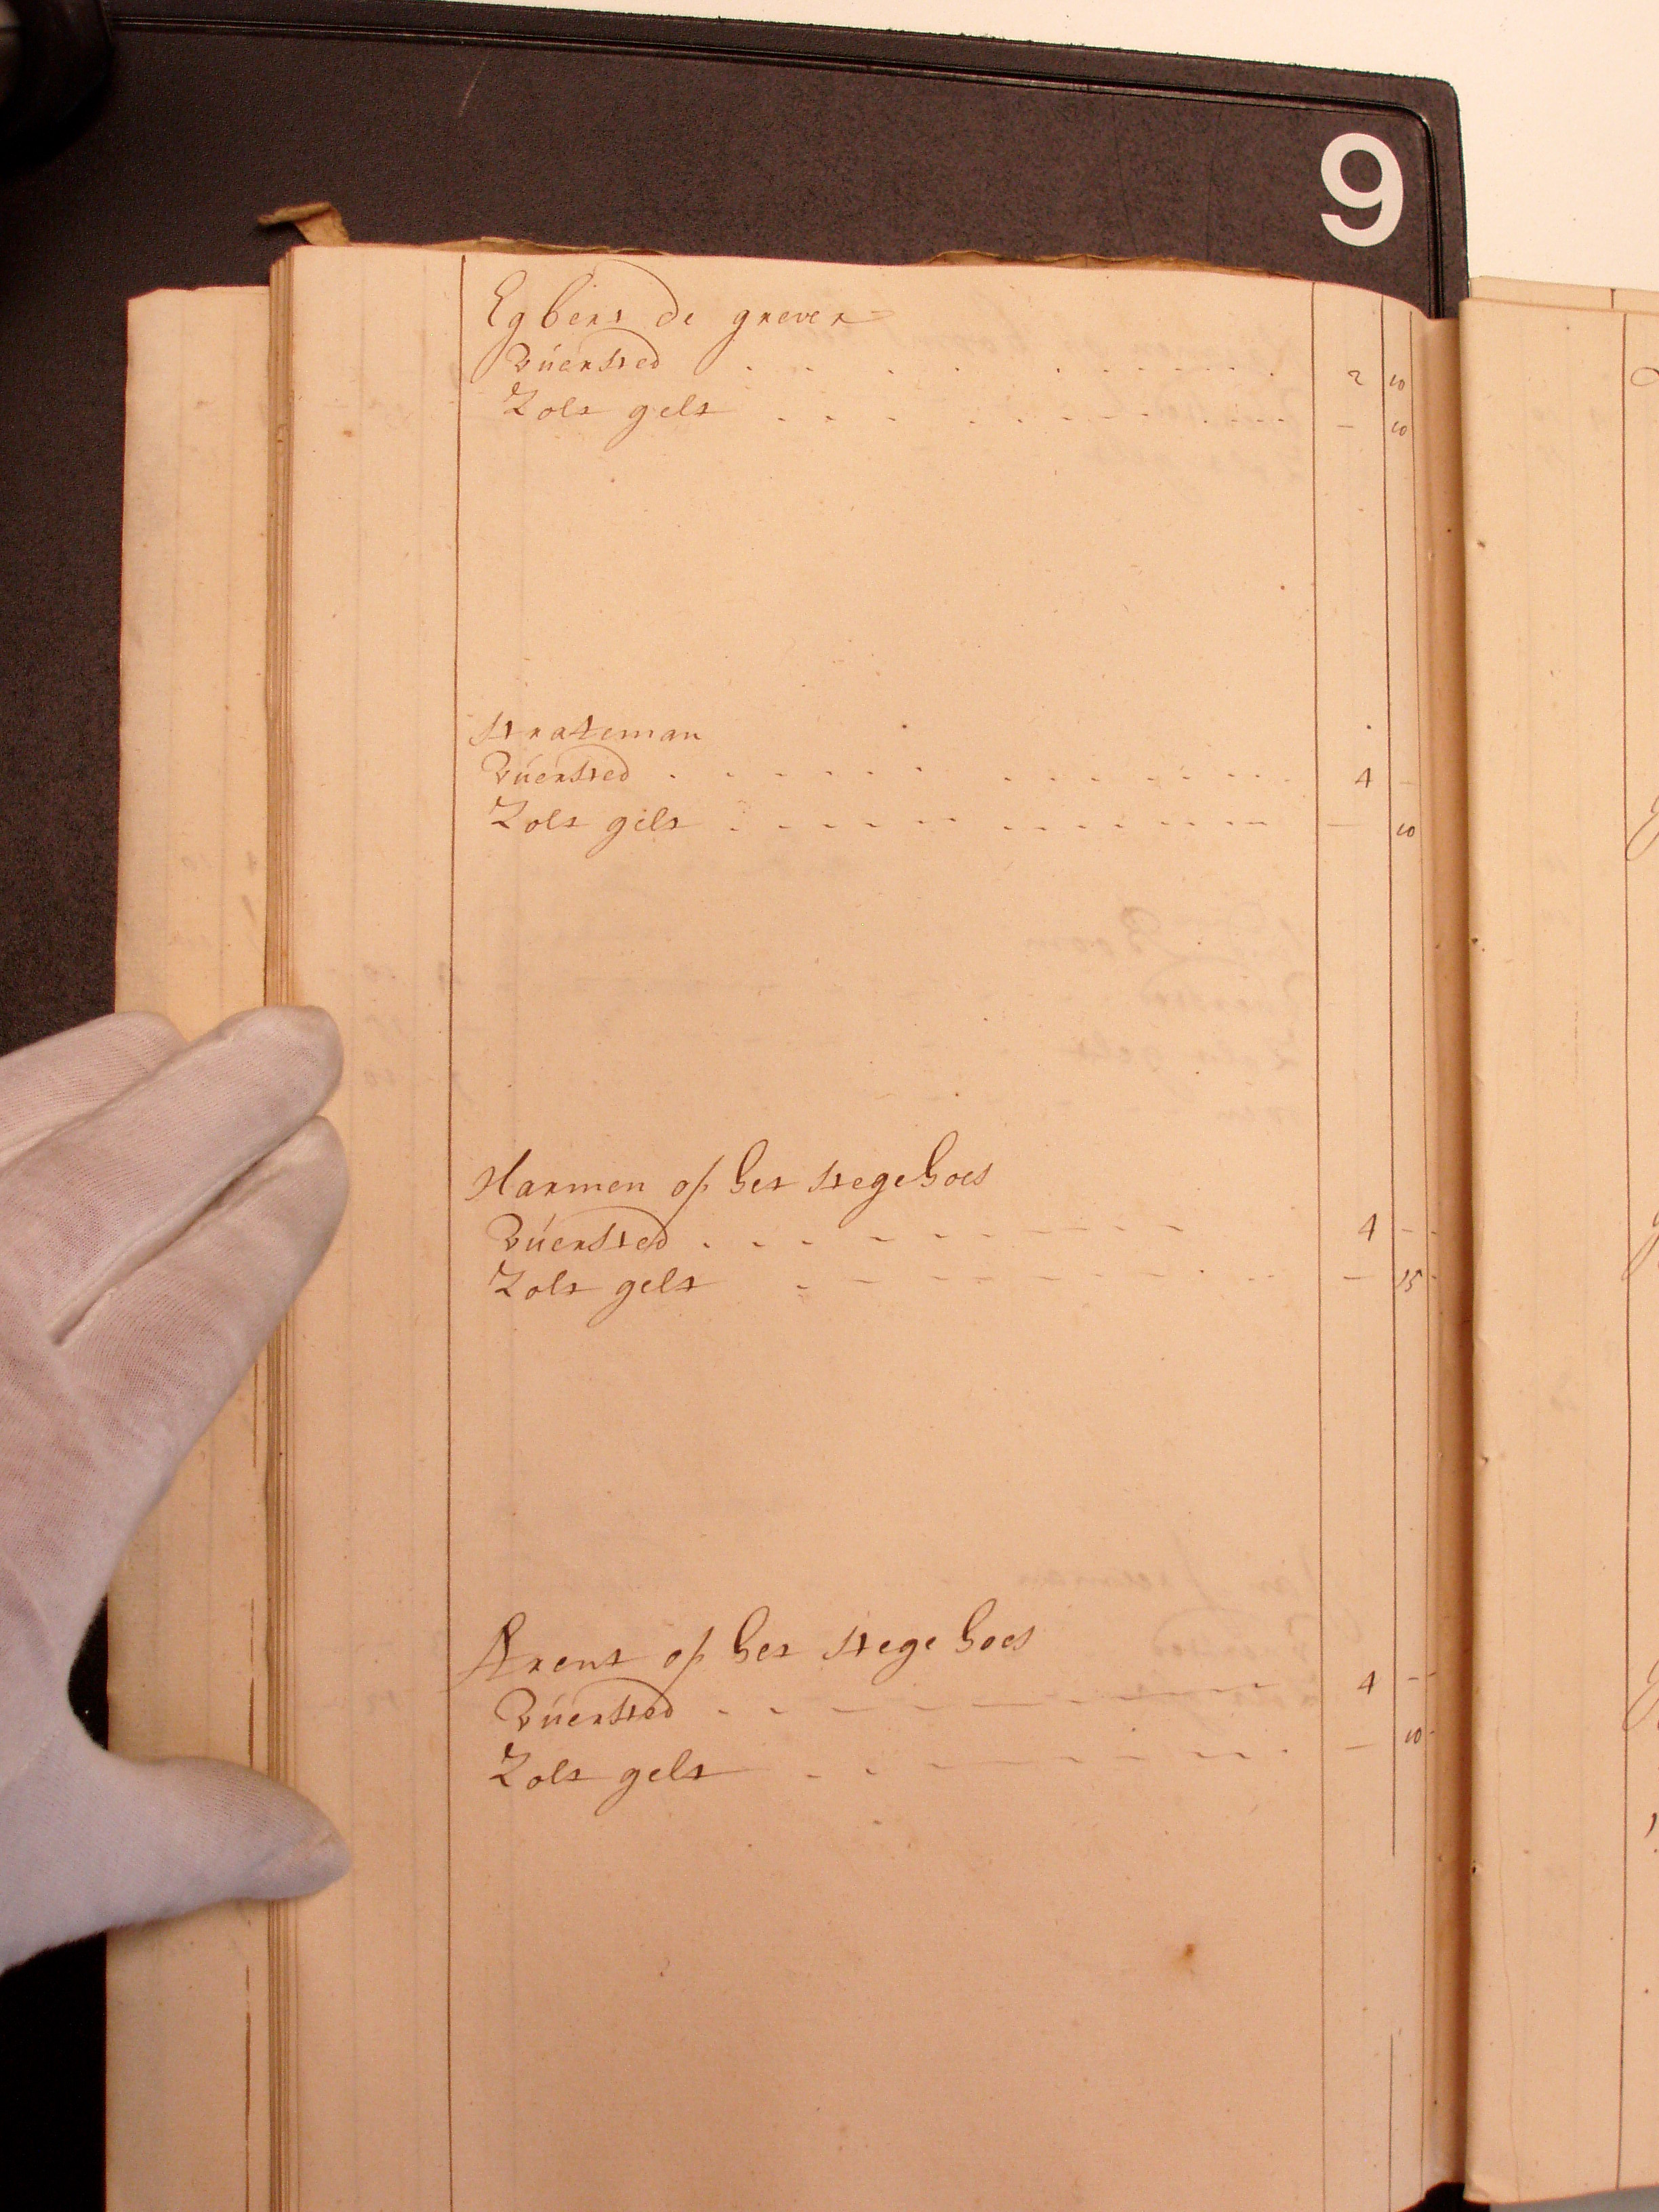 9
Egbert de grever
Vúersted . . . . . . . . . . . 2 10
Zolt gelt . . . . . . . . . . . — 10
Strateman
Vúersted . . . . . . . . . . . 4 -
Zolt gelt . . . . . . . . . . . — 10
Harmen op het stegehoes
Vúersted . . . . . . . . . . . 4 -
Zolt gelt . . . . . . . . . . . — 15
Arent op het stege hoes
Vúersted . . . . . . . . . . . 4 -
Zolt gelt . . . . . . . . . . . — 10